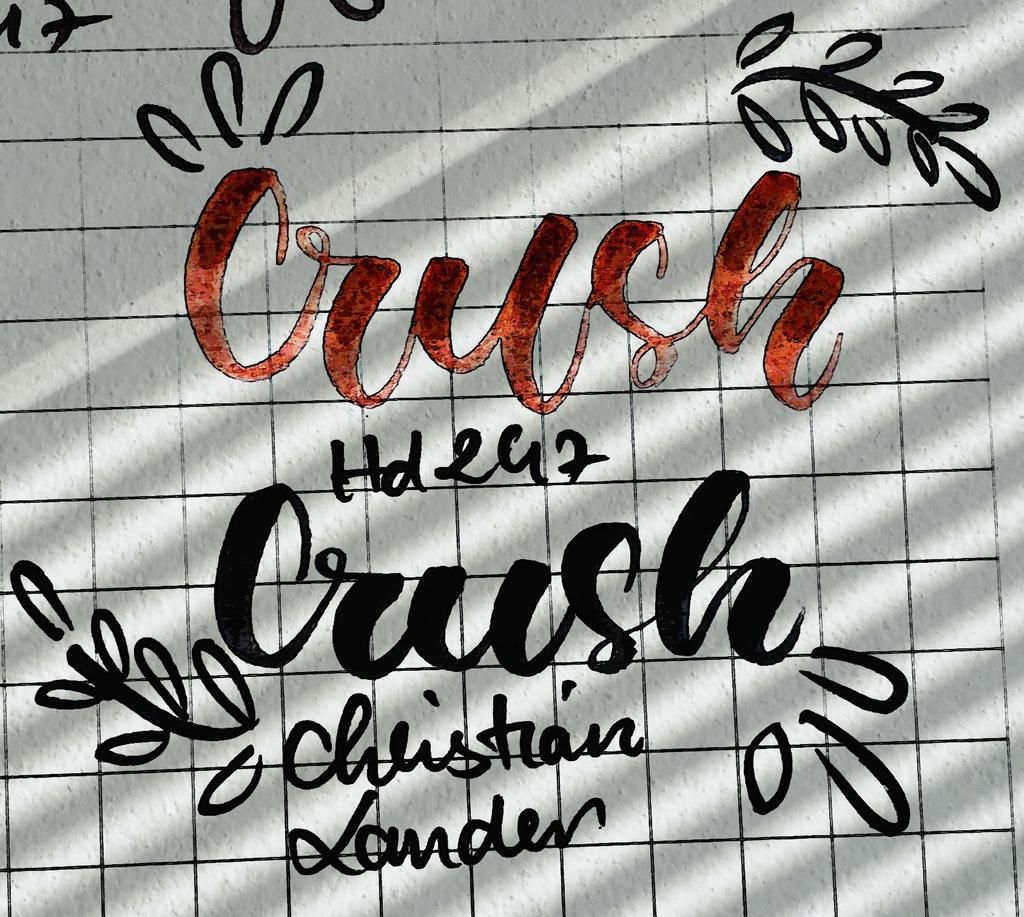 Crush
Hd 247
Crush
Christian
Lander